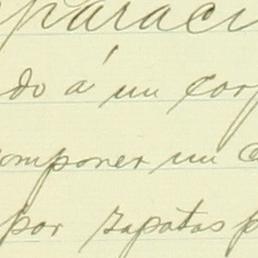 paraci
do á un cor
omponer un c
por zapatas p